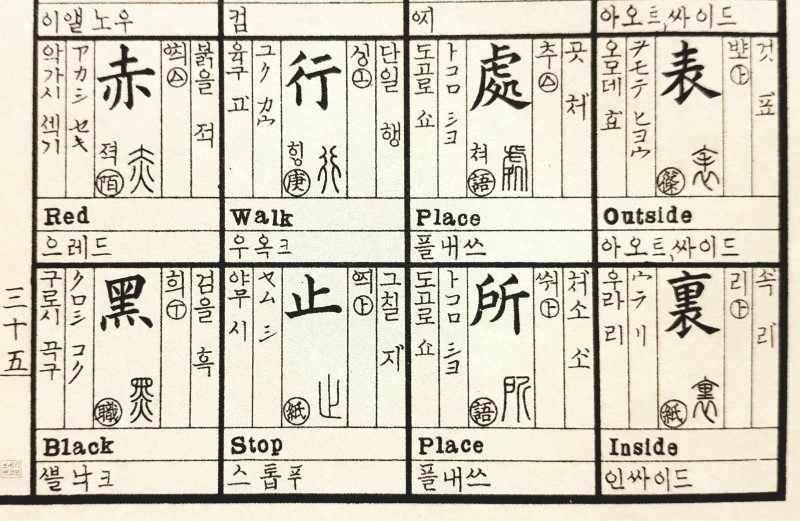 아오트,싸이드
컴
이앨노우
것 표
㊤
表
篠
ヲモテ ヒヨウ
오모데 효
Outside
아오트,싸이드
곳 처
추
處
처
語
トコロ シヨ
도고로 쇼
Place
플내쓰
단일 행
싱
行
힝
庚
ユク カウ
육구 고
Walk
우옥크
붉을 적
赤
젹
陌
アカシ セキ
악가시 섹기
Red
으레드
속 리
리
裏
紙
ウラ リ
우라 리
Inside
인싸이드
처소 소
쉬
所
語
トコロ シヨ
도고로 쇼
Place
플내쓰
그칠 지
止
紙
ヤム シ
야무 시
Stop
스톱푸
검을 흑
희
黑
職
クロシ コク
구로시 곡구
Black
쁠낙크
三十五